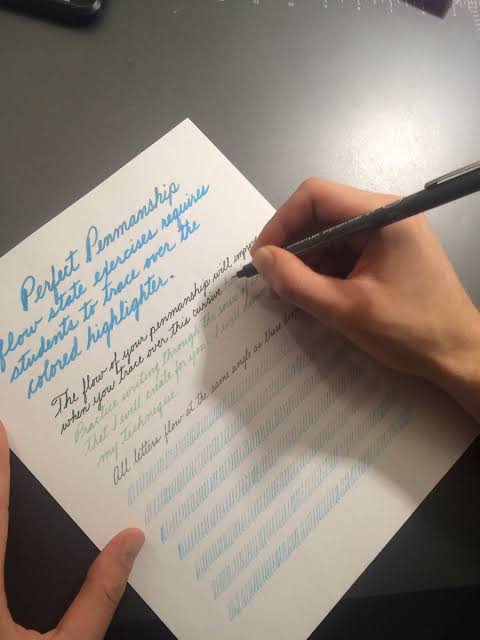 Perfect Penmanship
flow state exercises requires
students to trace over the
colored highlighter.
The flow of your penmanship will
when you trace over this cursive
Practice writing through the
that I will create for you. I will
my technique
All letters flow at the same angle as these